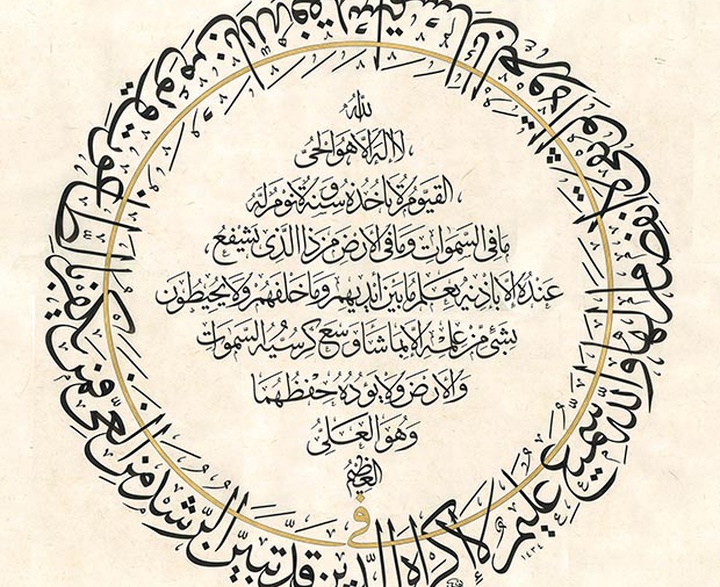 الله
لا اله الا هو الحي
القيوم لا تأخذه سنة ولا نوم له
ما في السموات وما في الارض من ذا الذي يشفع
عنده الا باذنه يعلم ما بين ايديهم وما خلفهم ولا يحيطون
بشئ من علمه الا بما شا وسع كرسيه السموات
والارض ولا يؤده حفظهما
وهو العلي
العظيم
لا اكراه في الدين قد تبين الرشد من الغي فمن يكفر بالطاغوت ويؤمن بالله فقد استمسك
انفصام لها والله سميع عليم